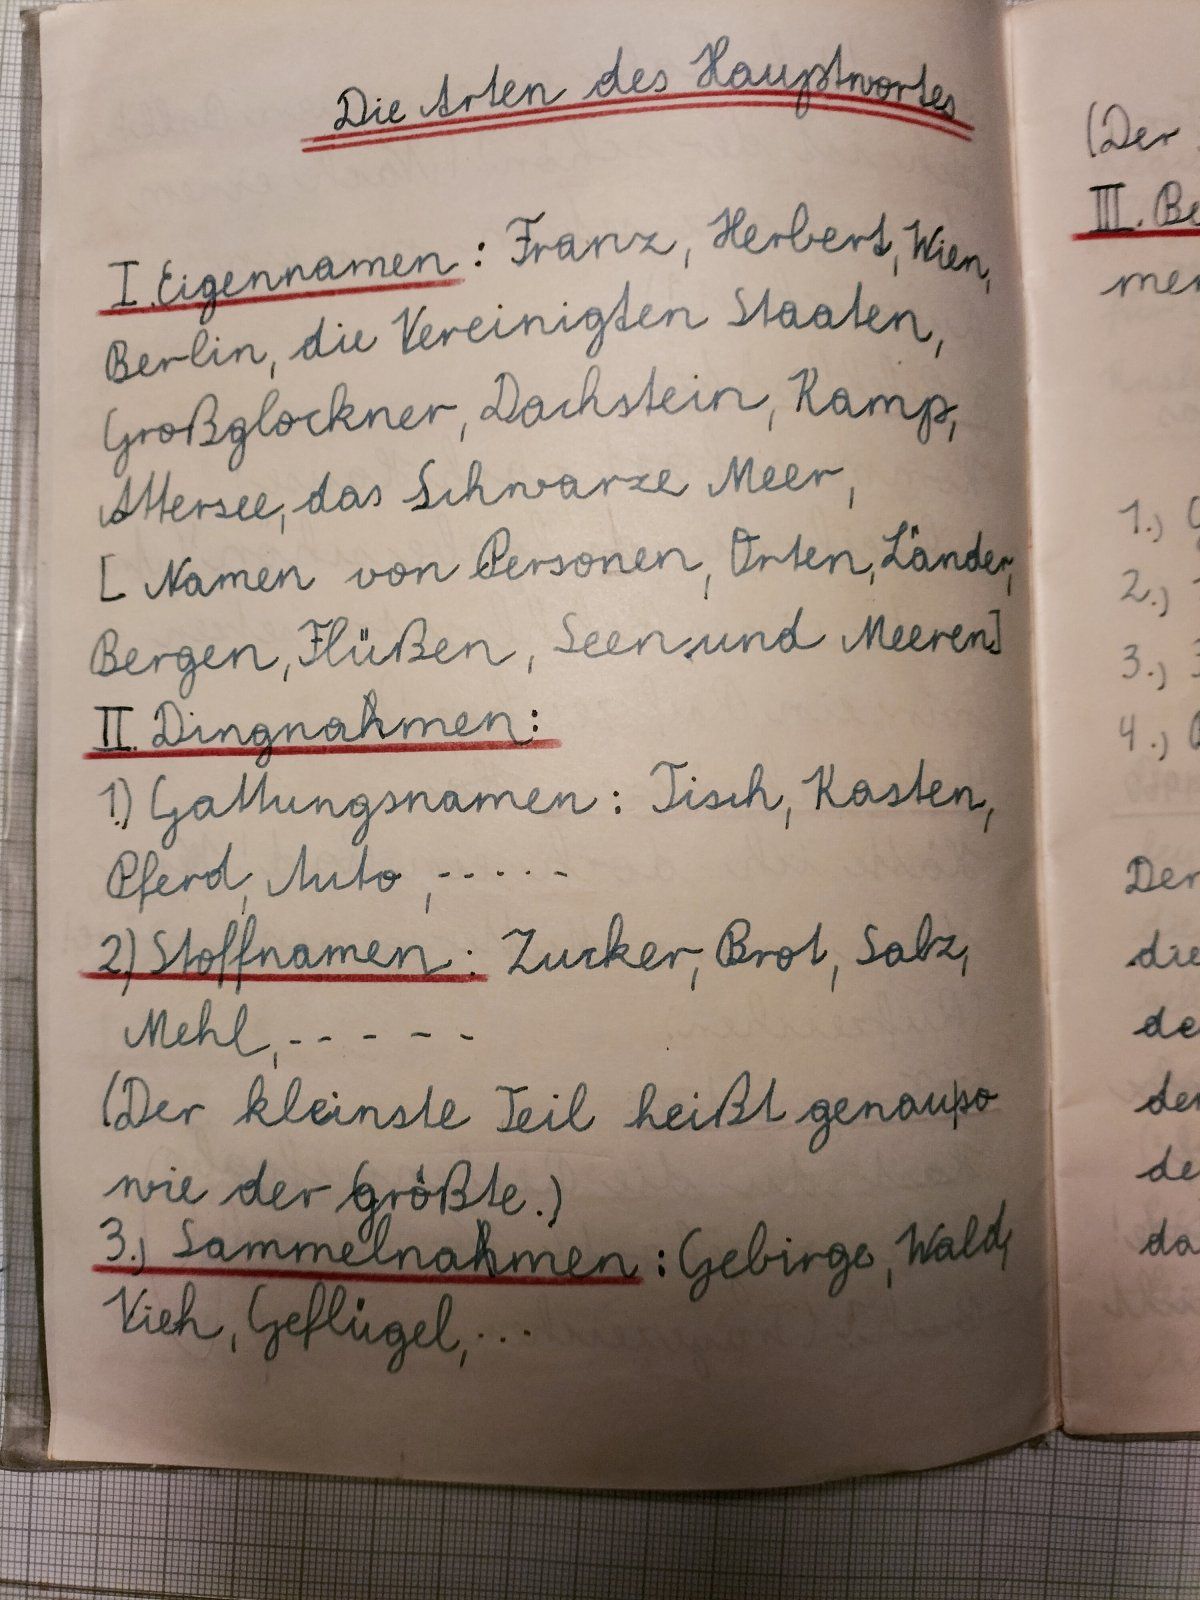 Die Arten des Hauptwortes
I. Eigennamen: Franz, Herbert, Wien,
Berlin, die Vereinigten Staaten,
Großglockner, Dachstein, Kamp,
Attersee, das Schwarze Meer,
[Namen von Personen, Orten, Länder,
Bergen, Flüßen, Seen und Meeren]
II. Dingnahmen:
1.) Gattungsnamen: Tisch, Kasten,
Pferd, Auto, -----
2.) Stoffnamen: Zucker, Brot, Salz,
Mehl, -----
(Der kleinste Teil heißt genauso
wie der größte.)
3.) Sammelnahmen: Gebirge, Wald,
Vieh, Geflügel, ...
(Der
III. Be
mer
1.)
2.)
3.)
4.)
Der
die
de
der
de
da